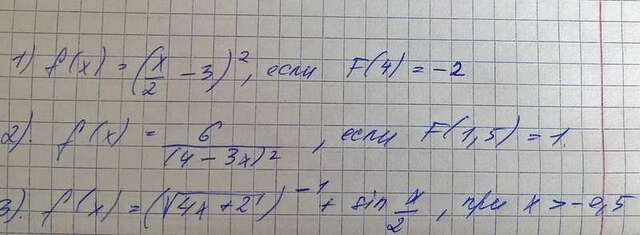 1) f(x) = (x/2 - 3)², если F(4) = -2
2). f(x) = 6/(4-3x)², если F(1,5) = 1.
3). f(x) = (√4x+2)⁻¹ + sin x/2, при x > -0,5